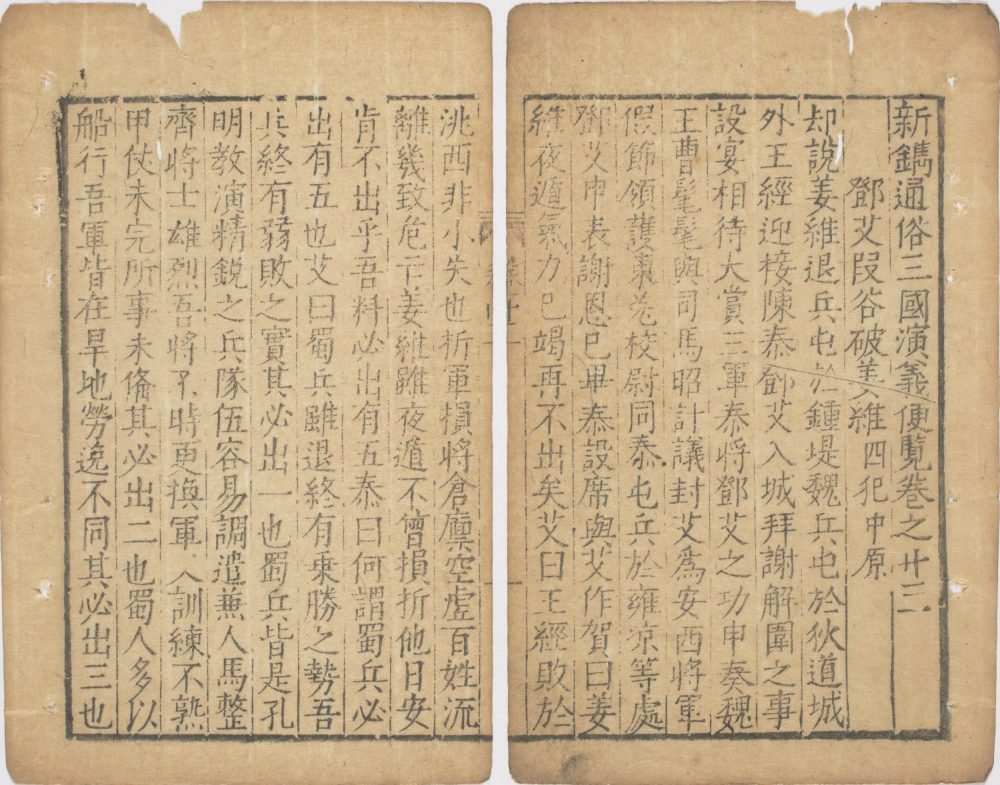 新鐫通俗三國演義便覽卷之廿三
鄧艾段谷破姜維四犯中原
却說姜維退兵屯於鍾堤魏兵屯於狄道城
外王經迎接陳泰鄧艾入城拜謝解圍之事
設宴相待大賞三軍泰將鄧艾之功申奏魏
王曹髦髦與司馬昭計議封艾爲安西將軍
假節領護東羌校尉同泰屯兵於雍凉等處
鄧艾申表謝恩已畢泰設席與艾作賀曰姜
維夜遁氣力已竭再不出矣艾曰王經敗於
洮西非小失也折軍損將倉廪空虚百姓流
離幾致危亡姜維雖夜遁不曾損折他日安
肯不出乎吾料必出有五泰曰何謂蜀兵必
出有五也艾曰蜀兵雖退終有乗勝之勢吾
兵終有弱敗之實其必出一也蜀兵皆是孔
明教演精鋭之兵隊伍容易調遣蒹人馬整
齊將士雄烈吾將不時更換軍人訓練不熟
甲仗未完所事未俻其必出二也蜀人多以
船行吾軍皆在旱地勞逸不同其必出三也